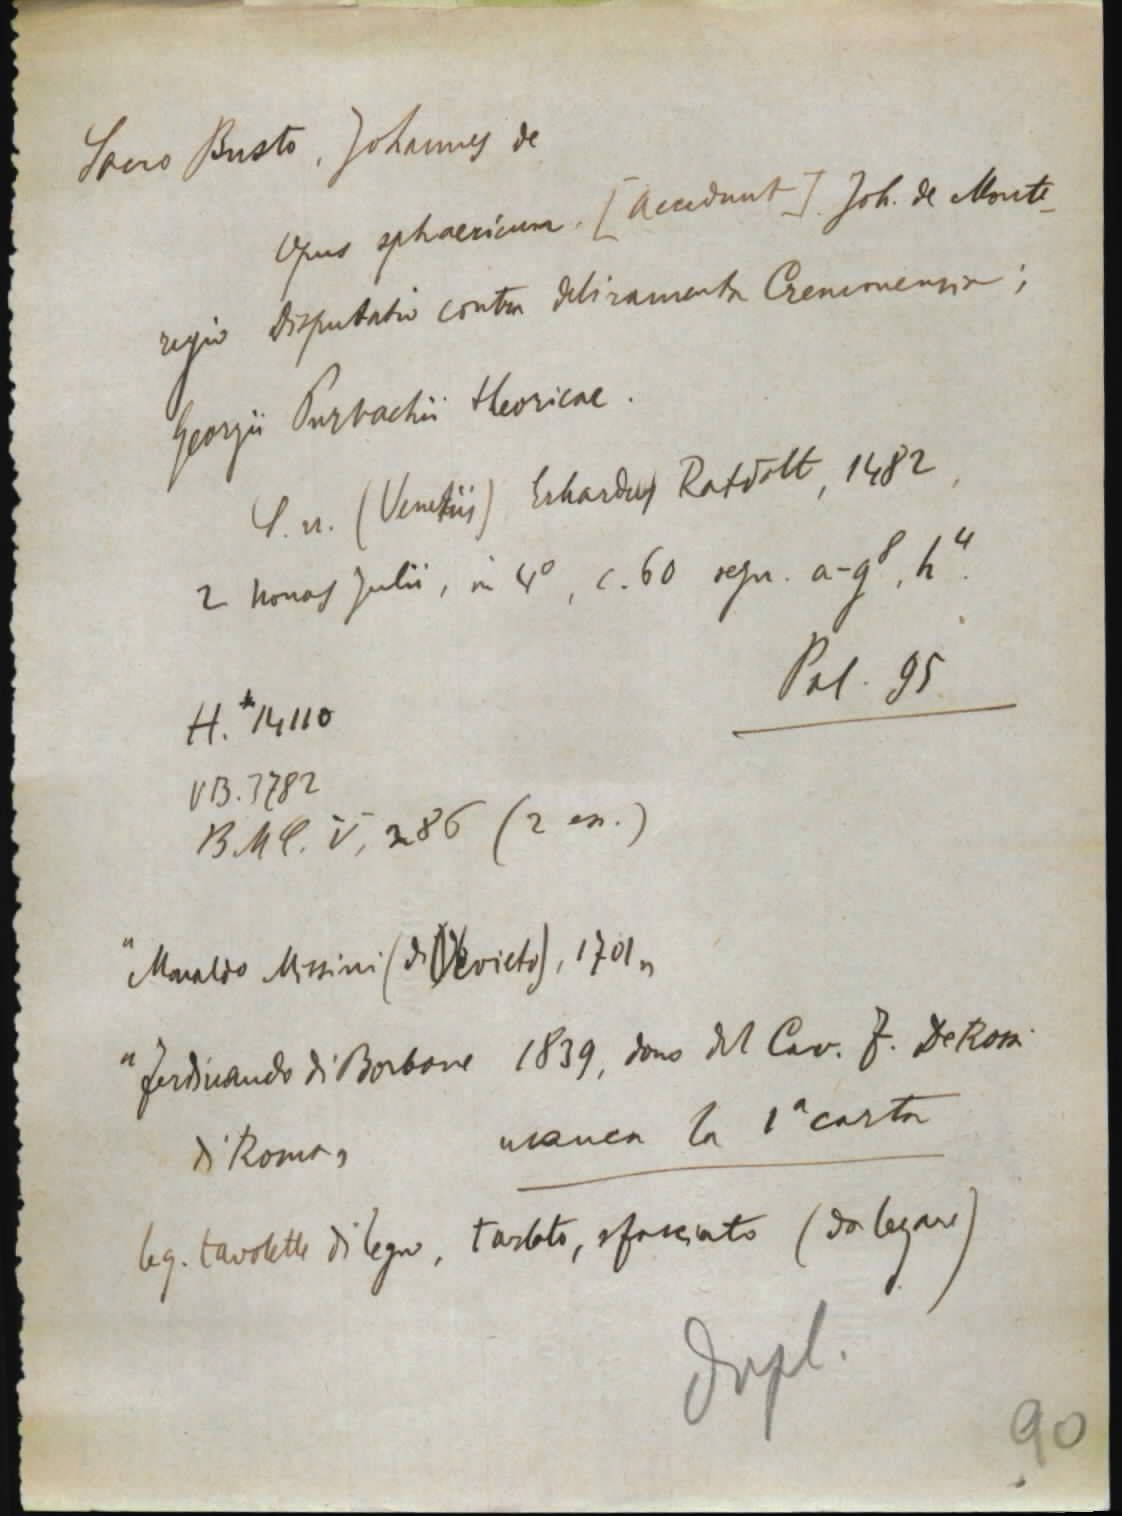 Sacro Busto, Johannes de
Opus sphaericum. [Accedunt]. Joh. de Monte-
regio Disputatio contra deliramenta Cremonensia;
Georgii Purbachii theoricae.
S. n. (Venetiis) Erhardus Ratdolt, 1482,
2 nonas Julii, in 4°, c. 60 segn. a-g⁸, h⁴.
Pal. 95
H. *14110
VB. 3782
B.M.C. V, 286 (2 es.)
"Monaldo Missini (di Orvieto), 1701"
"Ferdinando di Borbone 1839, dono del Cav. F. De Rossi
di Roma"
manca la 1ª carta
leg. tavolette di legno, tarlato, sfasciato (da legare)
Dupl.
90